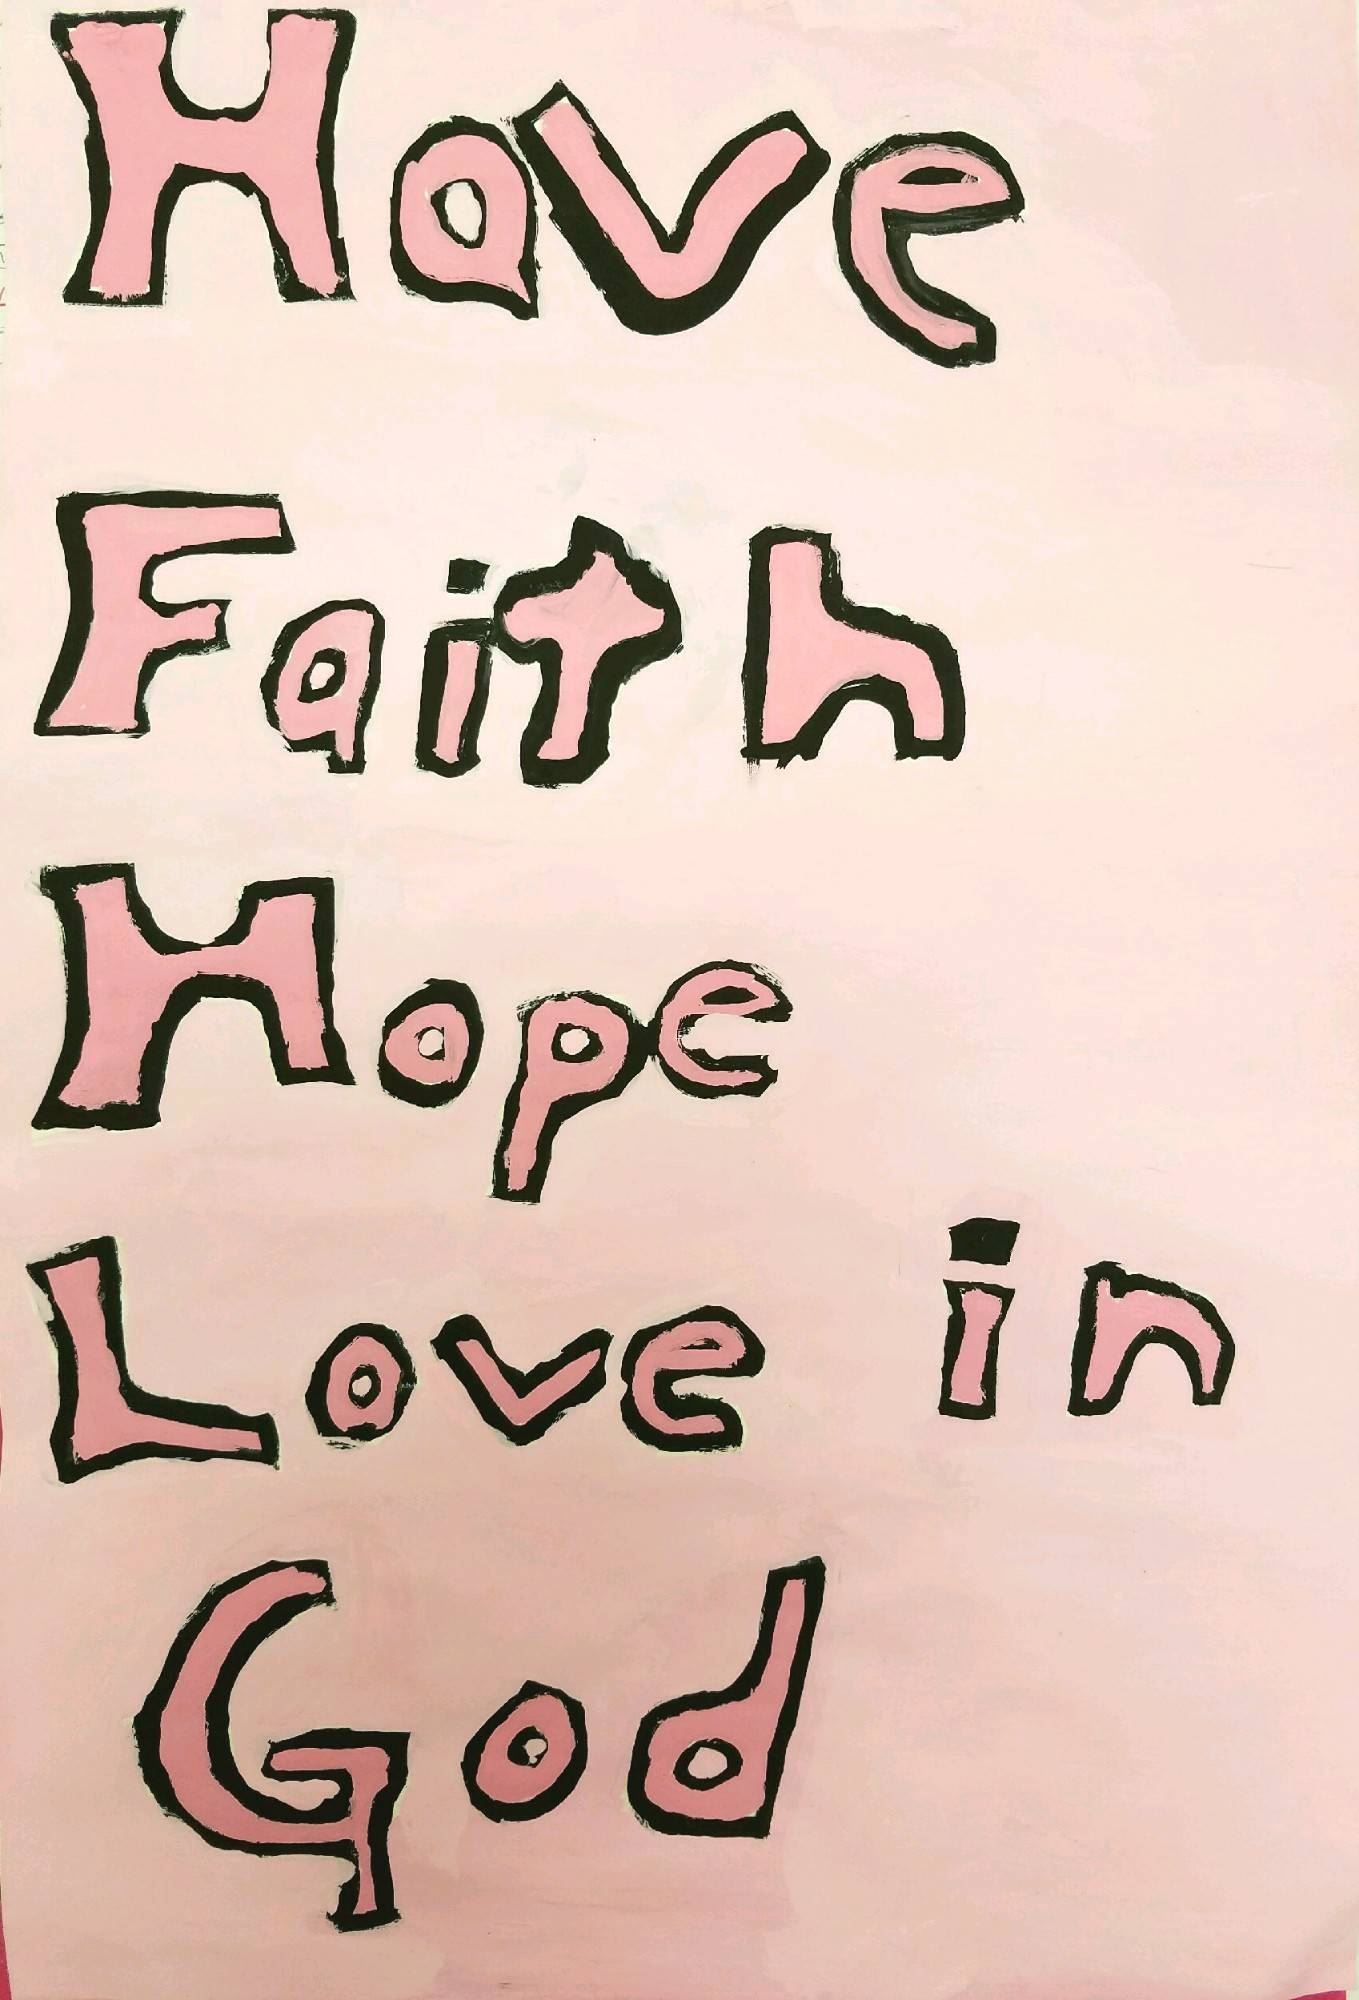 Have
Faith
Hope
Love in
God